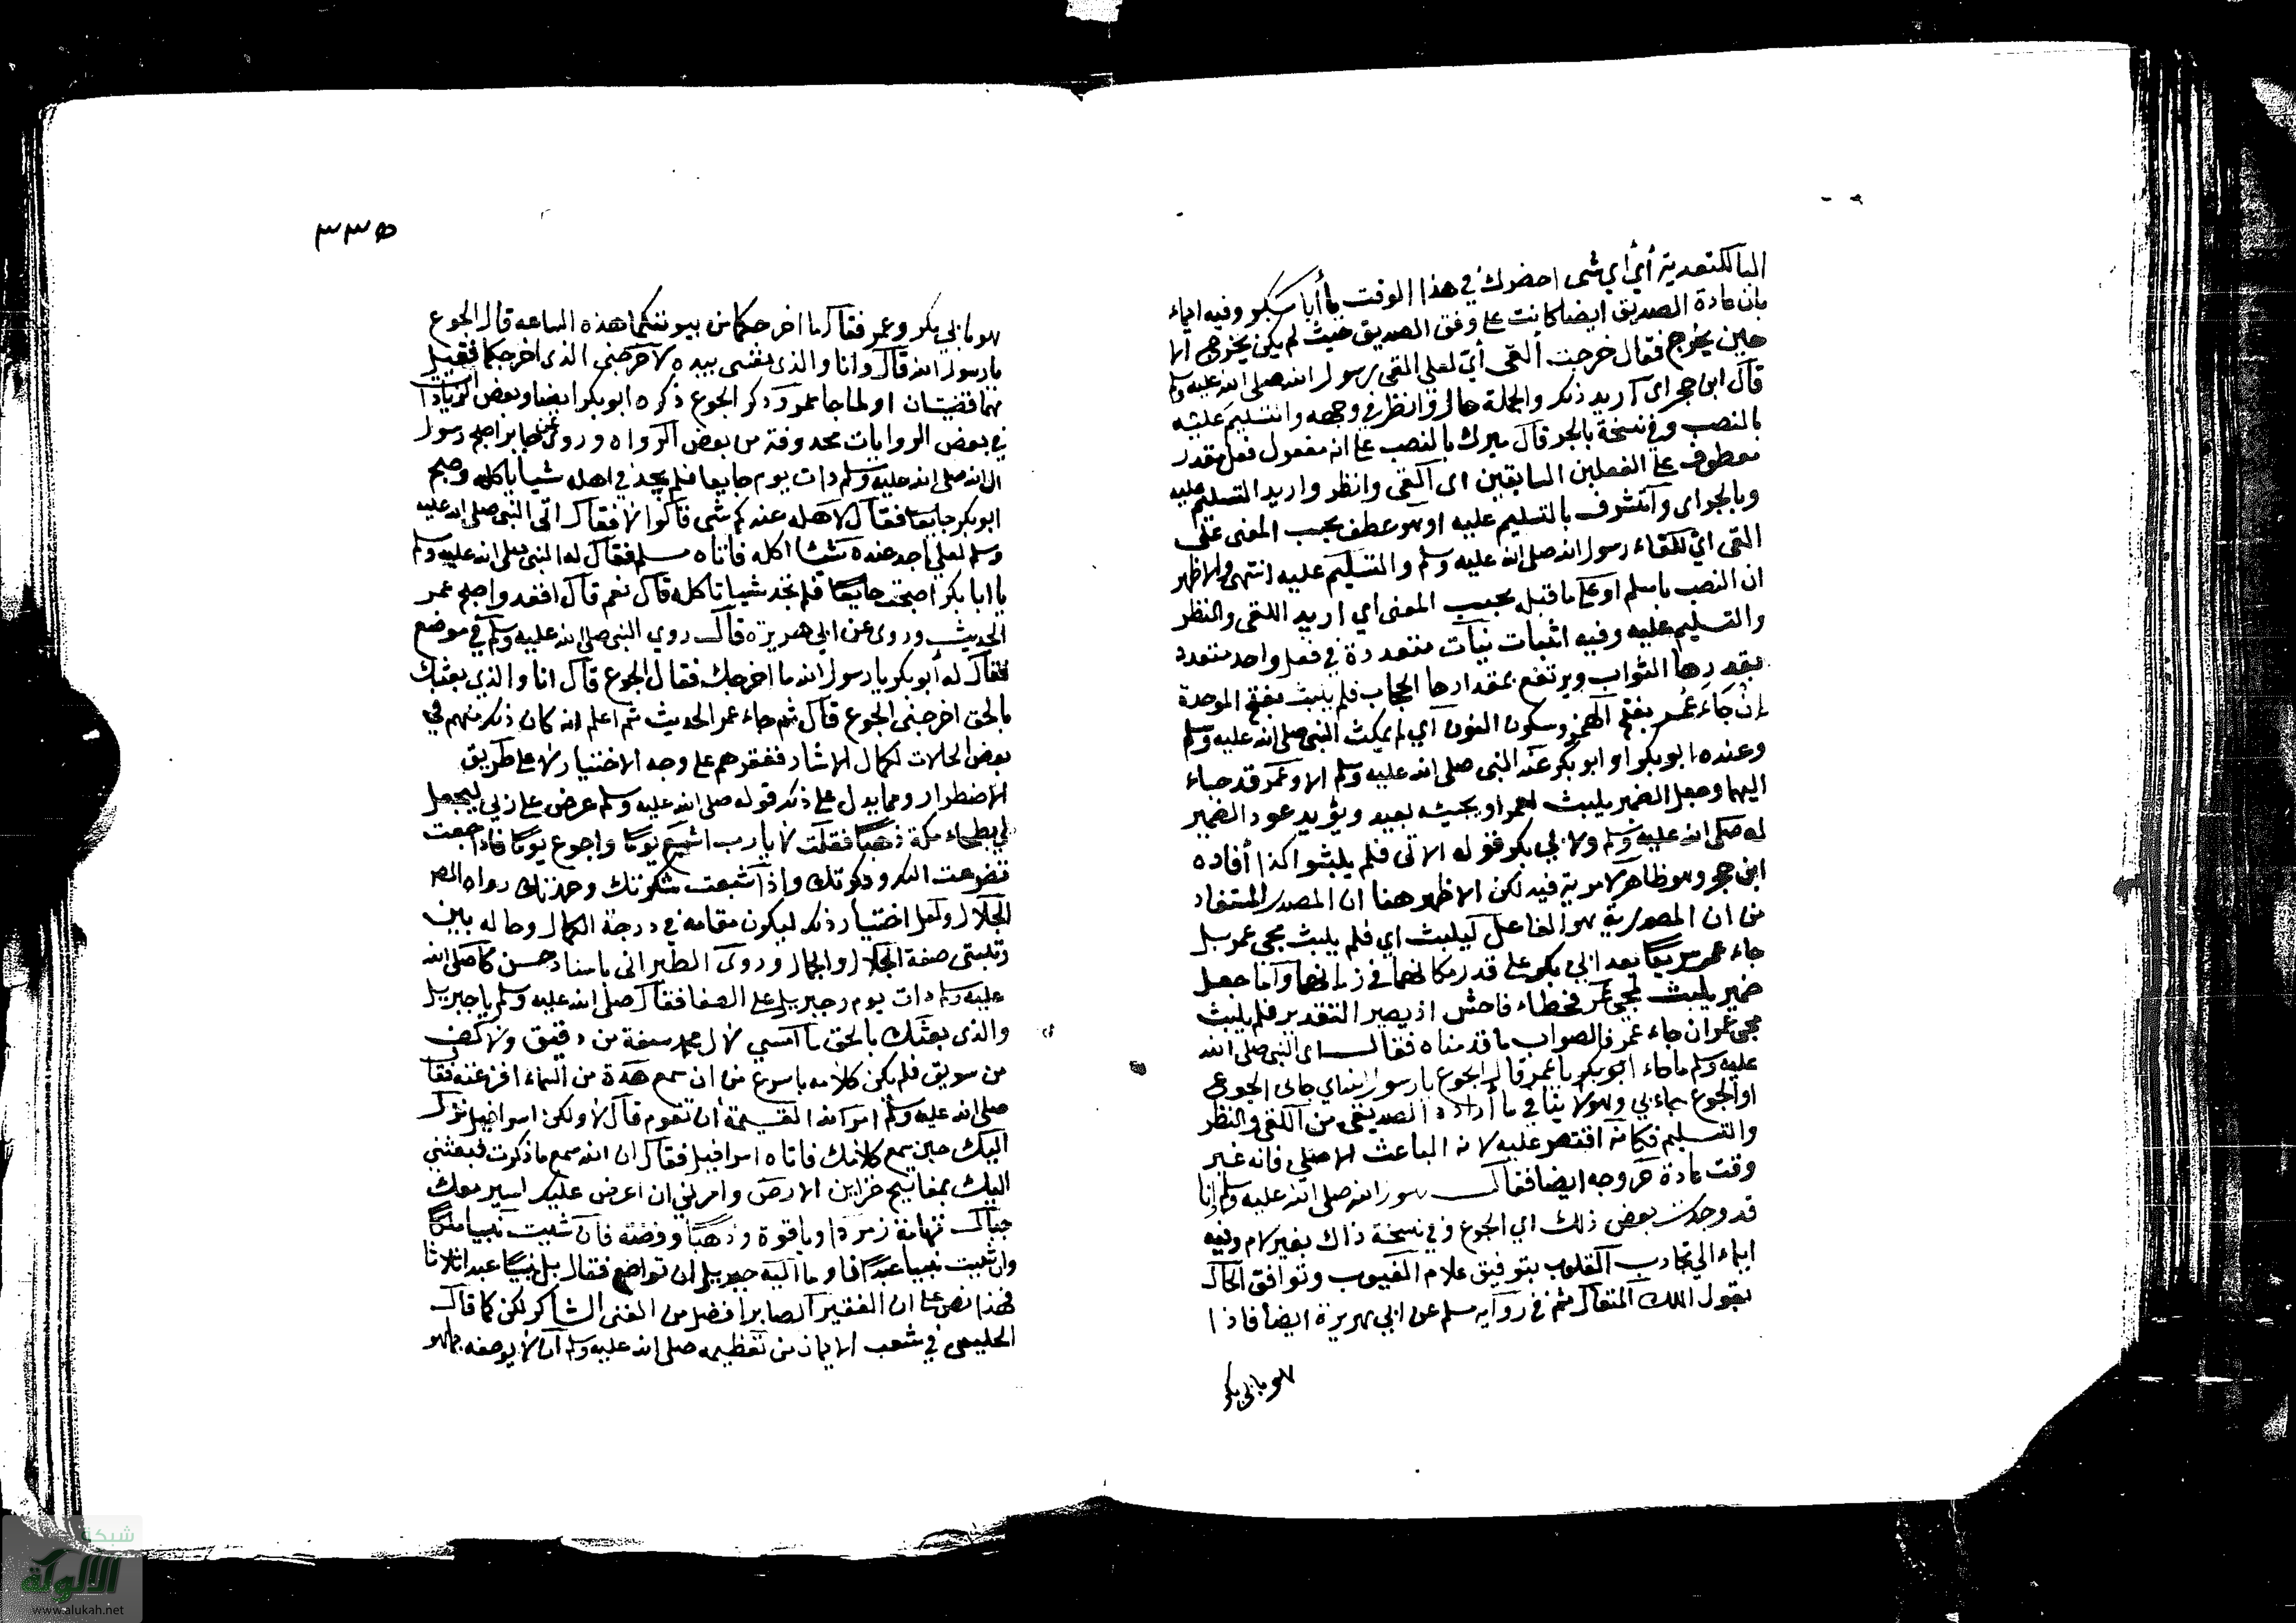 البا للتعدية أي أي شى احضرك في هذا الوقت يا أبا بكر وفيه ايماء
بان عادة الصديق ايضا كانت على وفق الصديق حيث لم يكن يخرج الا
حين يخرج فقال خرجت ألقى أي لعلى القى رسول الله صلى الله عليه وسلم
قال ابن حجر اى اريد ذلك والجملة حال وانظر في وجهه والتسليم عليه
بالنصب وفي نسخة بالجر قال ميرك بالنصب على انه مفعول فعل مقدر
معطوف على الفعلين السابقين اى القى وانظر واريد التسليم عليه
وبالجر اى واتشرف بالتسليم عليه او هو عطف بحسب المعنى على
القى اى للقاء رسول الله صلى الله عليه وسلم والتسليم عليه انتهى والاظهر
ان النصب باسلم او على ما قبله بحسب المعنى اي اريد اللقى والنظر
والتسليم عليه وفيه اثبات نيات متعددة في فعل واحد متعدد
بقدرها الثواب ويرتفع بمقدارها الحجاب فلم يلبث بفتح الموحدة
ان جاء عمر بفتح الهمز وسكون النون اي لم يمكث النبى صلى الله عليه وسلم
وعنده ابو بكر او ابو بكر عند النبى صلى الله عليه وسلم الا وعمر قد جاء
اليهما وجعل الضمير يلبث لعمر او بحيثه بعيد ويؤيد عود الضمير
له صلى الله عليه وسلم ولابي بكر قوله الاتى فلم يلبثوا كذا أفاده
ابن حجر وهو ظاهر لا مرية فيه لكن الاظهر هنا ان المصدر المستفاد
من ان المصدرية هو الفاعل ليلبث اي فلم يلبث مجى عمر بل
جاء عمر سريعا بعد ابي بكر على قدر مكانهما في زمانهما واما جعل
ضمير يلبث لمجى عمر فخطاء فاحش اذ يصير التقدير فلم يلبث
مجى عمر ان جاء عمر فالصواب ما قدمناه فقال اى النبى صلى الله
عليه وسلم ما جاء بك يا عمر قال الجوع يا رسول الله اي جائى الجوع
او الجوع جاء بي وهو لا ينافي ما أراده الصديق من اللقى والنظر
والتسليم فكانه اقتصر عليه لانه الباعث الاصلي فانه غير
وقت عادة خروجه ايضا فقال رسول الله صلى الله عليه وسلم وانا
قد وجدت بعض ذلك اي الجوع وفي نسخة ذاك بغير لام وفيه
ايماء الى تجاذب القلوب بتوفيق علام الغيوب وتوافق الحال
بقول الملك المتعال ثم في رواية مسلم عن ابي هريرة ايضا فاذا
هو بابى بكر
٣٣٥
هو بابي بكر وعمر فقال ما اخرجكما من بيوتكما هذه الساعه قال الجوع
يا رسول الله قال وانا والذى نفسى بيده لاخرجنى الذى اخرجكما فقيل
هما قضيتان او لما جا عمر وذكر الجوع ذكره ابو بكر ايضا وبعض الزيادات
في بعض الروايات محذوفة من بعض الرواه وروى عن جابر اصبح رسول
الله صلى الله عليه وسلم ذات يوم جايعا فلم يجد في اهله شيا ياكله وصبح
ابو بكر جايعا فقال لاهله عندكم شى قالوا لا فقال اتى النبى صلى الله عليه
وسلم لعلي اجد عنده شيئا اكله فاتاه سلم فقال له النبى صلى الله عليه وسلم
يا ابا بكر اصبحت جايعا فلم تجد شيا تاكله قال نعم قال اقعد واصبح عمر
الحديث وروى عن ابي هريرة قال روي النبى صلى الله عليه وسلم في موضع
فقال له أبو بكر يا رسول الله ما اخرجك فقال الجوع قال انا والذي بعثك
بالحق اخرجنى الجوع قال ثم جاء عمر الحديث ثم اعلم انه كان ذلك منهم في
بعض الحلات لكمال الايثار ففقرهم على وجه الاختيار لا على طريق
الاضطرار ومما يدل على ذلك قوله صلى الله عليه وسلم عرض على ربي ليجعل
لي بطحاء مكة ذهبا فقلت لا يا رب اشبع يوما واجوع يوما فاذا جعت
تضرعت اليك وذكرتك واذا شبعت شكرتك وحمدتك رواه المص
الجلال ولعل اختيار ذلك ليكون مقامه في درجة الكمال وحاله بين
صفة الجلال والجمال وروى الطبرانى باسناد حسن كان صلى الله
عليه وسلم ذات يوم وجبريل على الصفا فقال صلى الله عليه وسلم يا جبريل
والذى بعثك بالحق ما امسي لال محمد سفة من دقيق ولا كف
من سويق فلم يكن كلامه باسرع من ان سمع هدة من السماء افزعته فقال
صلى الله عليه وسلم امر الله القيمة ان تقوم قال لا ولكن اسرافيل نزل
اليك حين سمع كلامك فاتاه اسرافيل فقال ان الله سمع ما ذكرت فبعثنى
اليك بمفاتيح خزاين الارض وامرني ان اعرض عليك اسير معك
جبال تهامة زمردا وياقوة وذهبا وفضة فان شيت نبيا ملكا
وان شيت نبيا عبدا فاوما اليه جبريل ان تواضع فقال بل نبيا عبدا ثلاثا
فهذا نص على ان الفقير الصابر افضل من الغنى الشاكر لكن كما قال
الحليمى في شعب الايمان من تعظيمه صلى الله عليه وسلم ان لا يوصف بما هو
شبكة
الألوكة
www.alukah.net